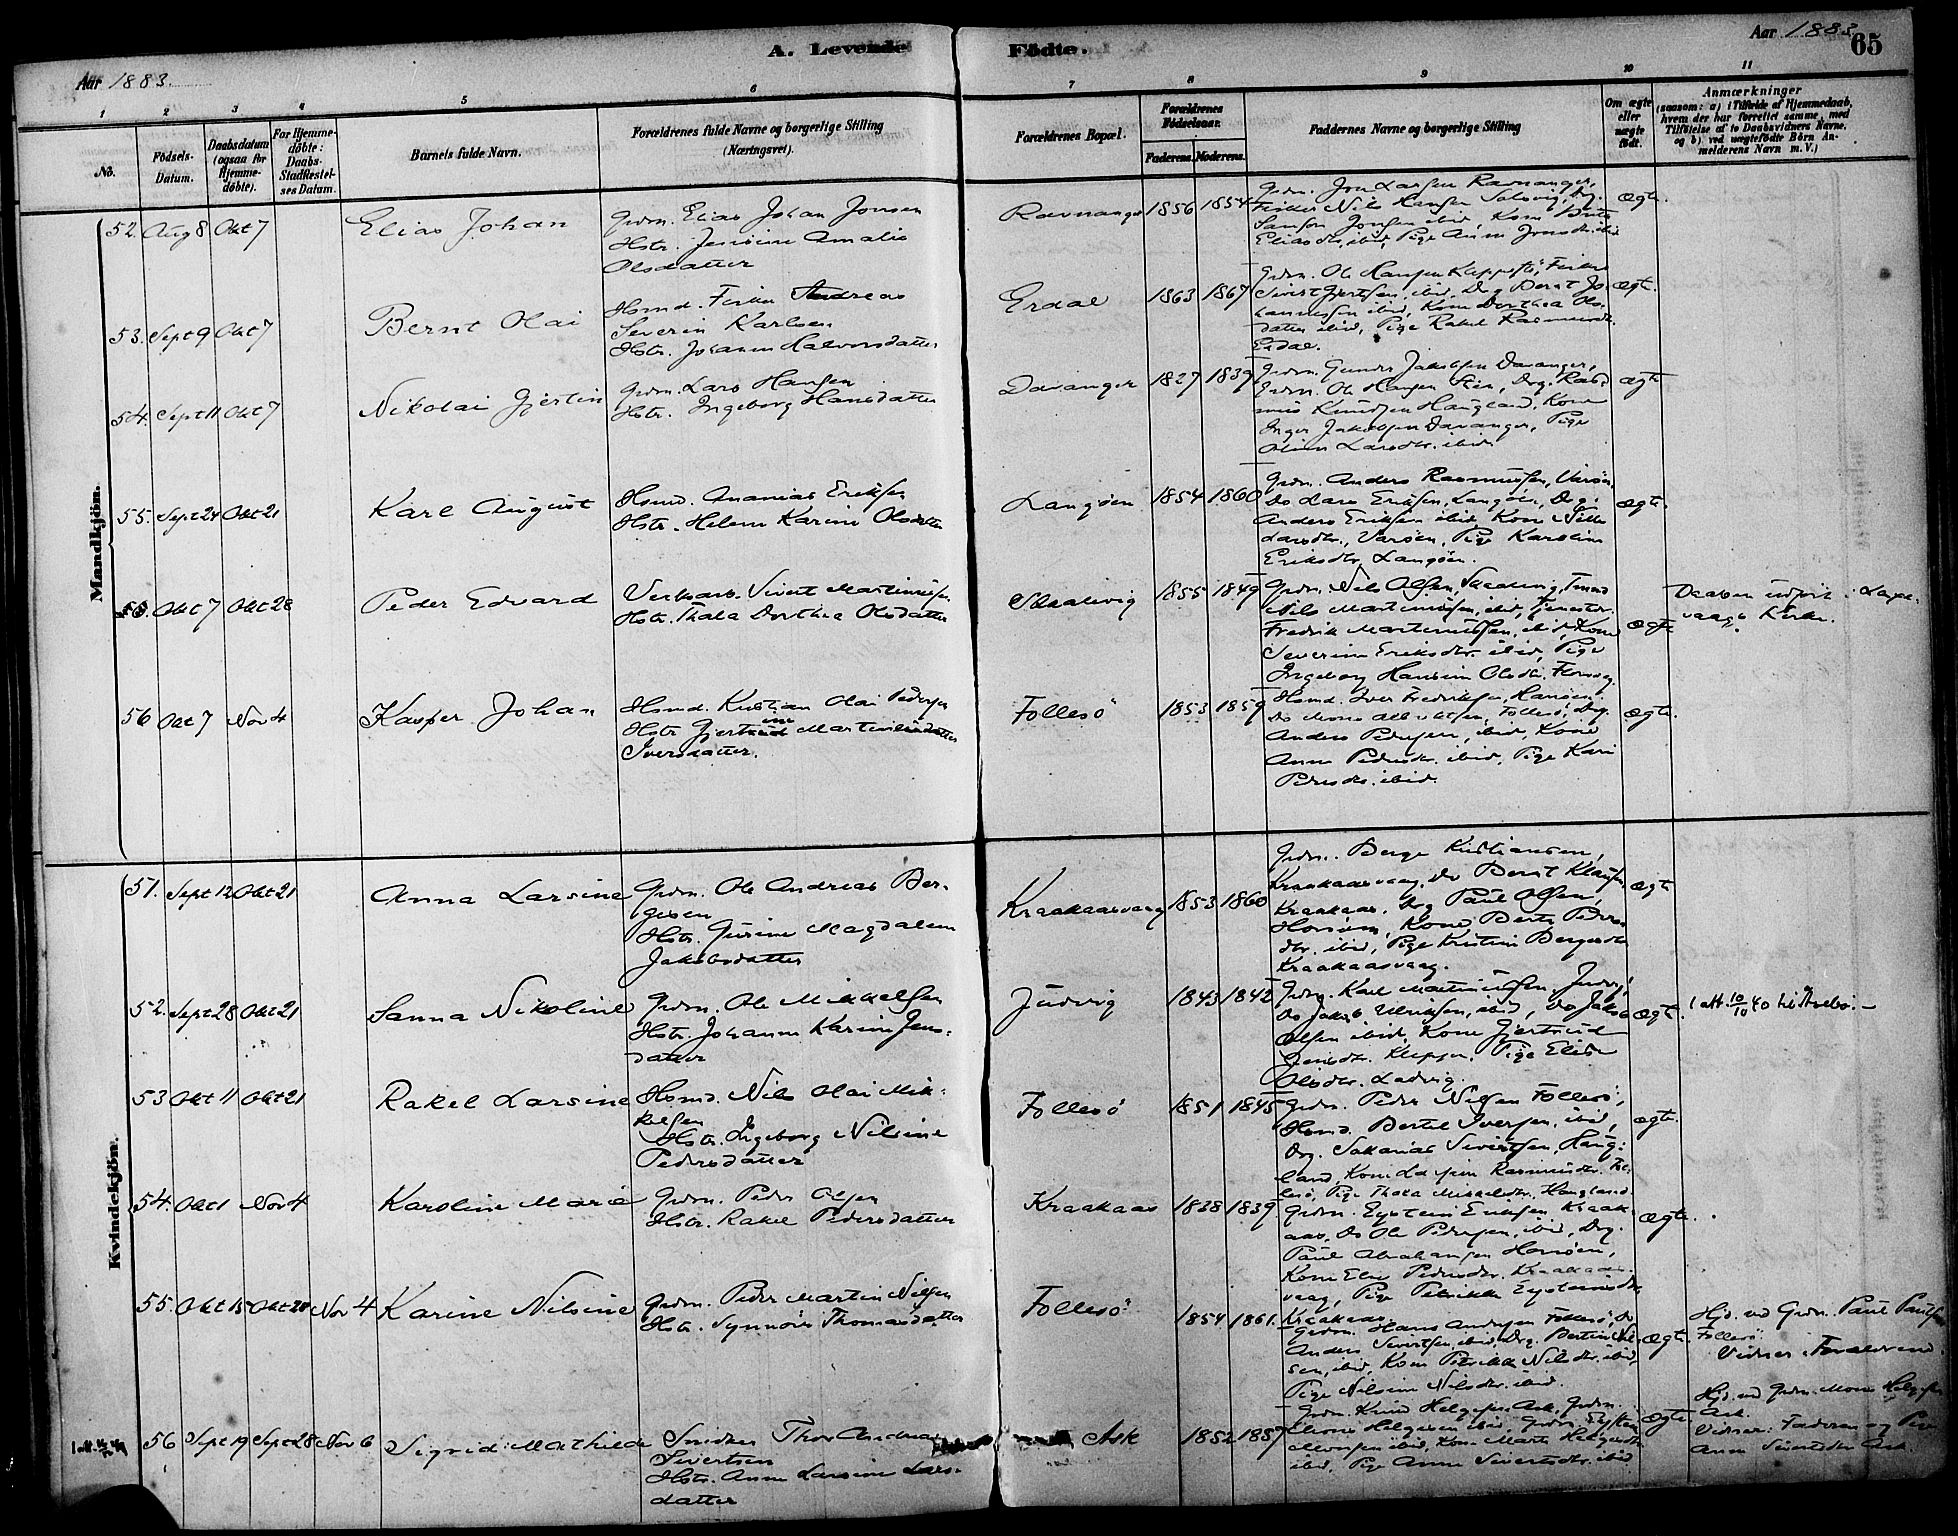 A. Levende Födte.
Aar 1883.
Aar 1883. 65
1 2 3 4 5 6 7 8 9 10 11
No.
Födsels-Datum.
Daabsdatum (ogsaa for Hjemme-döbte).
For Hjemme-döbte: Daabs-Stadfæstel-ses Datum.
Barnets fulde Navn.
Forældrenes fulde Navne og borgerlige Stilling (Næringsvei).
Forældrenes Bopæl.
Forældrenes Födselsaar.
Faderens. Moderens.
Faddernes Navne og borgerlige Stilling
Om ægte eller uægte födt.
Anmærkninger
(saasom: a) i Tilfælde af Hjemmedaab, hvem der har forrettet samme, med Tilföielse af to Daabsvidners Navne, og b) ved uægtefödte Börn An-melderens Navn m. V.)
Mandkjön.
52. Aug 8 Okt 7 Elias Johan
Grdm. Elias Johan Jonsen
Hstr. Jensine Amalie
Olsdatter
Ravnanger 1856 1854
Grdm. Jon Larsen Ravnanger,
Fisker Nils Hansen
Samson Jonsen ibid, Kone Brite
Eliasdtr. ibid, Pige Anna Jonsdtr. ibid
ægte.
53. Sept 9 Okt 7 Bernt Olai
Hsmd. Fisker Andreas
Severin Karlsen
Hstr. Johanne Halvorsdatter
Erdal 1863 1867
Grdm. Ole Hansen Kleppestö, Fisker
Sivert Gjertsen, ibid, Drg Bernt Jo-
hannessen ibid, Kone Dorthea Ols-
datter ibid, Pige Rakel Rasmusdtr.
Erdal.
ægte.
54. Sept 11 Okt 7 Nikolai Gjertin
Grdm. Lars Hansen
Hstr. Ingeborg Hansdatter
Davanger 1827 1839
Grdm. Gunder Jakobsen Davanger,
Grdm. Ole Hansen Steen, Drg. Ras-
mus Knudsen Haugland, Kone
Inger Jakobsen Davanger, Pige
Oline Larsdtr. ibid.
ægte
55. Sept 24 Okt 21 Karl August
Hsmd. Ananias Eriksen
Hstr. Helene Karine Olsdatter
Langöen 1854 1860
Grdm. Anders Rasmussen,
Do Lars Eriksen, Langöen, Drg.
Anders Eriksen ibid, Kone Nille
Larsdtr., Pige Karoline
Eriksdtr. Langöen.
ægte.
Okt 7 Okt 28 Peder Edvard
Sivert Martinussen
Hstr. Thala Dorthea Olsdatter
Skaalevig 1855 1849
Grdm. Nils Olsen, Skaalevig,
Nils Martinussen, ibid,
Fredrik Martinussen, ibid, Kone
Severine Eriksdtr. ibid, Pige
Ingeborg Hansine Olsdtr.
ægte
Daaben udfört i Laxe-
vaags Kirke.
56 Okt 7 Nov 4 Kasper Johan
Hsmd. Kristian Olai Pedersen
Hstr. Gjertine
Iversdatter.
Follesö 1853 1859
Hsmd. Iver Fredriksen, Hanöen.
Do Mons Follesö, Drg.
Anders Pedersen, ibid, Kone
Anna Pedersdtr. ibid, Pige Kari
Pedersdtr. ibid.
ægte.
Kvindekjön.
51. Sept 12 Okt 21 Anna Larsine
Grdm. Ole Andreas Ber-
gesen
Hstr. Gurine Magdalene
Jakobsdatter
Kraakaasvaag 1853 1860
Grdm. Berge Kristiansen,
Kraakaasvaag, Do Bernt Klausen
Kraakaas, Drg Paul Olsen,
Horsöen, Kone Berthe Peders-
dtr. ibid, Pige Kristine Bergesdtr.
Kraakaasvaag.
ægte
52. Sept 28 Okt 21 Sanna Nikoline
Grdm. Ole Mikkelsen
Hstr. Johanne Karine Jens-
datter
Judvig 1843 1842
Grdm. Karl Martinussen Judvig,
Do Jakob Ulriksen, ibid, Do Jakob
Olsen ibid, Kone Gjertrud
Jensdtr. Kleppe, Pige Elise
Olsdtr. Ladvig.
ægte.
53 Okt 11 Okt 21 Rakel Larsine
Hsmd. Nils Olai Mik-
kelsen
Hstr. Ingeborg Nilsine
Pedersdatter
Follesö 1851 1845
Grdm. Peder Nilsen Follesö,
Hsmd. Bertel Iversen, ibid,
Drg. Sakarias Sivertsen, Haug-
land, Kone Rasmusdtr. Fol-
lesö, Pige Thala Mikkelsdtr. Haugland.
ægte.
54. Okt 1 Nov 4 Karoline Marie
Grdm. Peder Olsen
Hstr. Rakel Pedersdatter
Kraakaas 1838 1839
Grdm. Eystein Eriksen Kraak-
aas, Do Ole Pedersen, ibid, Drg.
Paul Abrahamsen Horsöen,
Kone Else Pedersdtr. Kraakaas-
vaag, Pige Petrikke Eysteinsdtr.
Kraakaas
ægte.
55. Okt 15 Okt 28 Nov 4 Karine Nilsine
Grdm. Peder Martin Nilsen
Hstr. Synnöve Thomasdatter
Follesö 1854 1861.
Grdm. Hans Andersen Follesö, Do
Anders Sivertsen, ibid, Drg. Bertin Nil-
sen, ibid, Kone Petrikke Nilsdtr. ibid,
Pige Nilsine Nilsdtr. ibid.
ægte.
Hjd. ved Grdm. Paul Paulsen
Follesö.
Vidner: Forældrene.
56 Sept 19 Sept 28 Nov 6 Sigrid Mathilde
Snedker Thor Andreas
Sivertsen
Hstr. Anne Larsine Lars-
datter
Ask 1852 1857
Grdm. Knud Helgesen Ask, Grdm.
Mons Helgesen ibid, Grdm. Eystein
Monsen ibid, Kone Marte Helgesdtr.
ibid, Pige Anne Sivertsdtr. ibid
ægte.
Hjd. ved Grdm. Mons Helgesen
Ask.
Vidner: Faderen og Pige
Anne Sivertsdtr Ask.